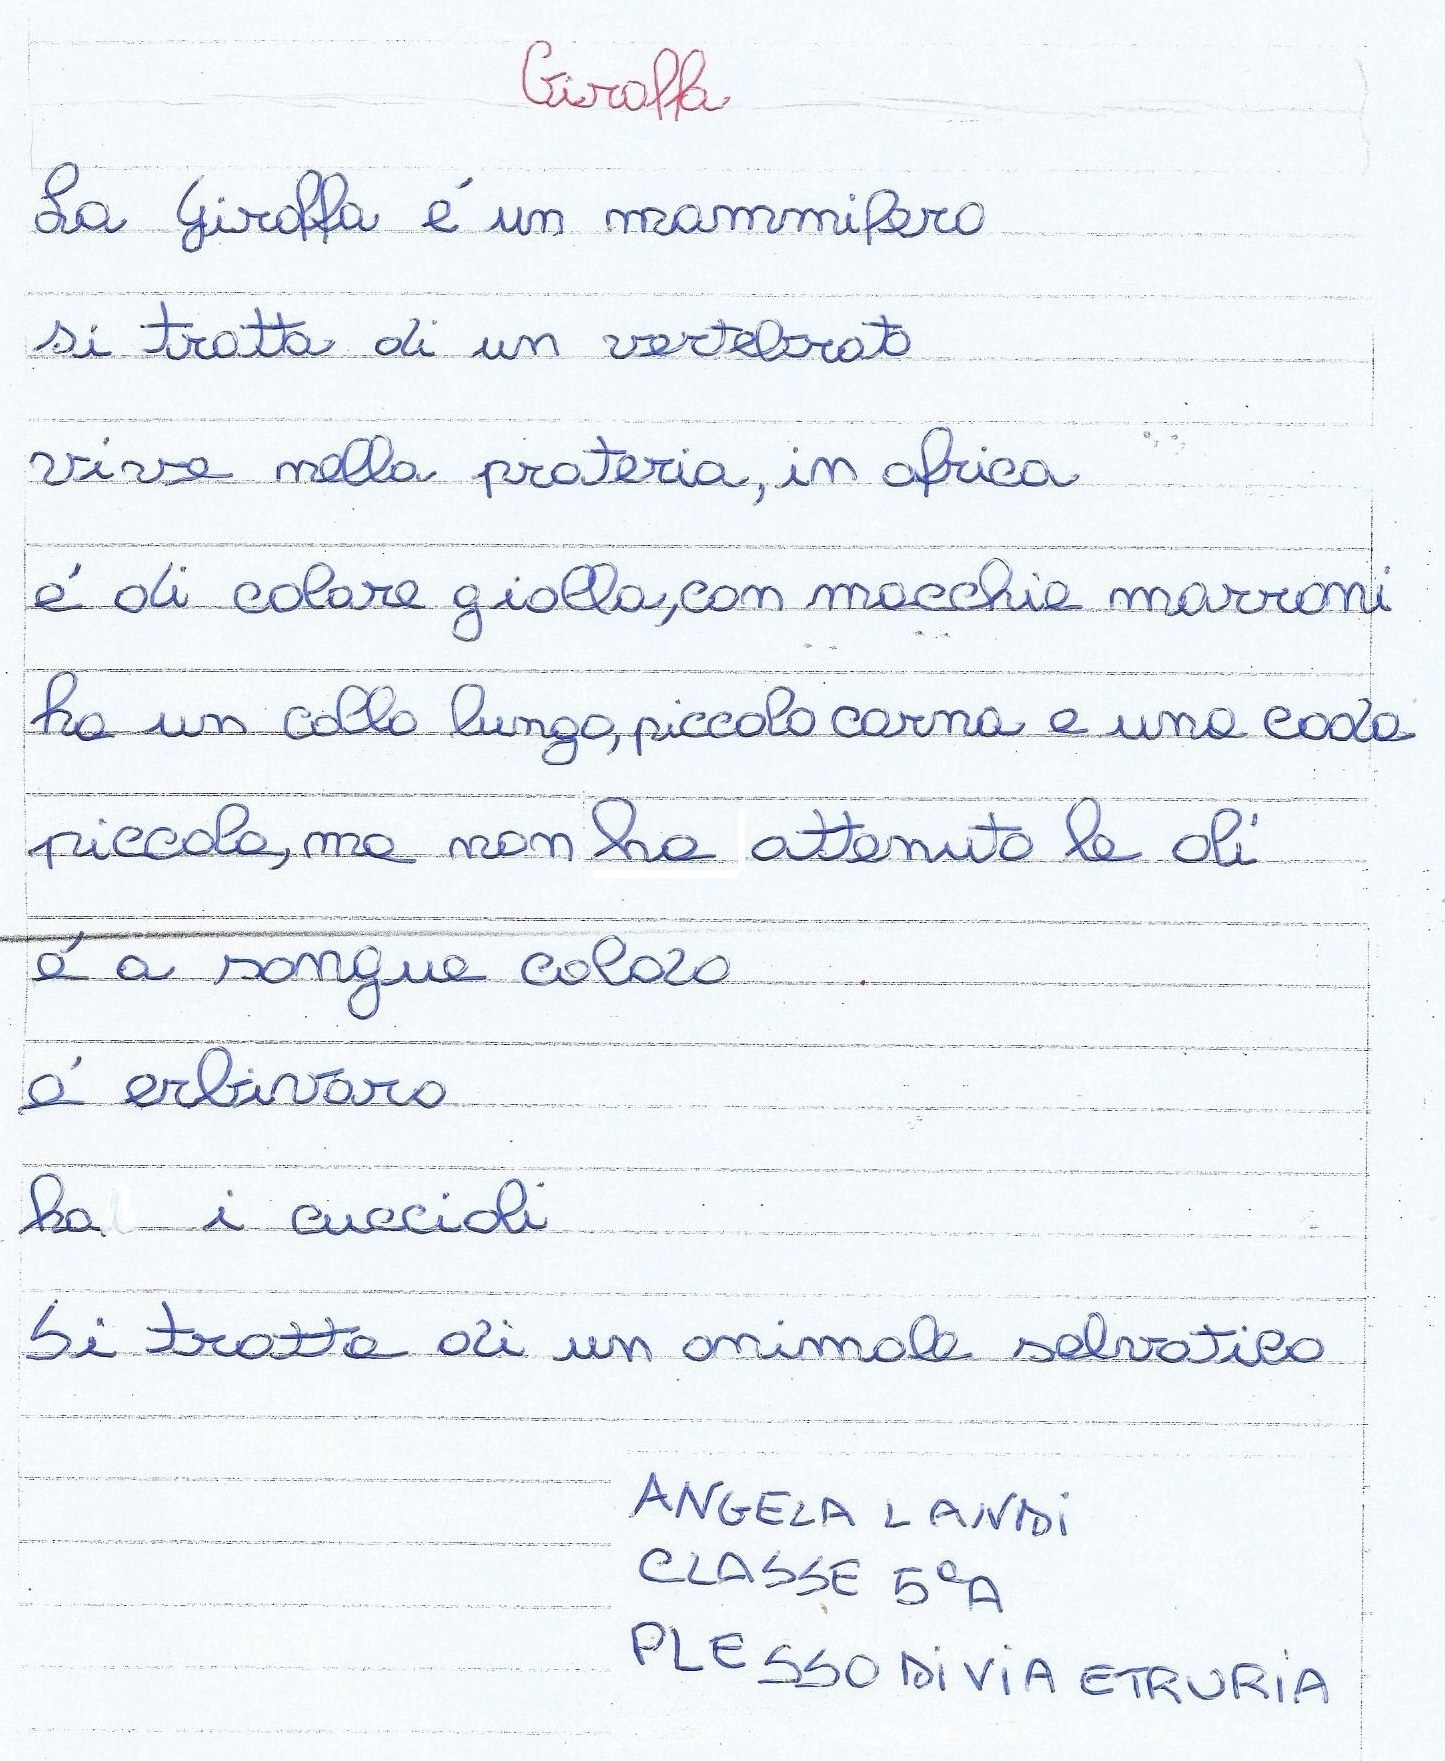 Giraffa
La Giraffa é un mammifero
si tratta di un vertebrato
vive nella prateria, in africa
é di colore giallo, con macchie marroni
ha un collo lungo, piccolo corna e una coda
piccola, ma non ha attenuto le di
é a sangue caldo
é erbivoro
ha i cuccioli
Si tratta di un animale selvatico
ANGELA LANDi
CLASSE 5ªA
PLESSO Di ViA ETRURIA